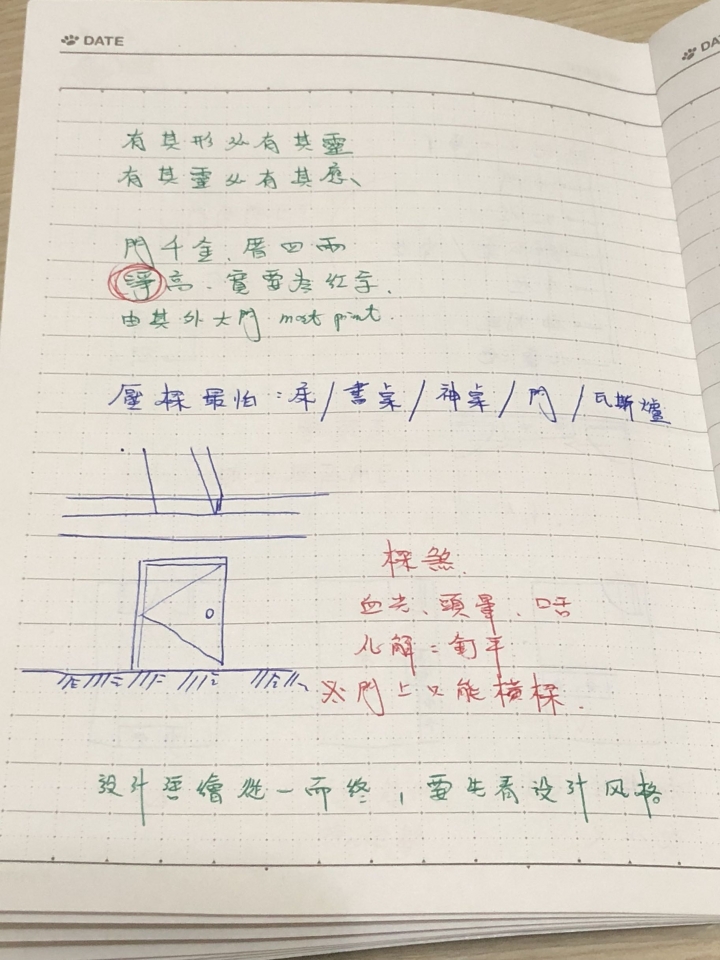 DATE
有其形必有其靈
有其靈必有其應、
門千金、厝四兩
淨高、寬要考紅字、
由其外大門 most point.
壓樑最怕：床/書桌/神桌/門/瓦斯爐
樑煞、
血光、頭暈、口舌
化解：釘平
※門上只能橫樑.
設計 繪從一而終，要先看設計风格